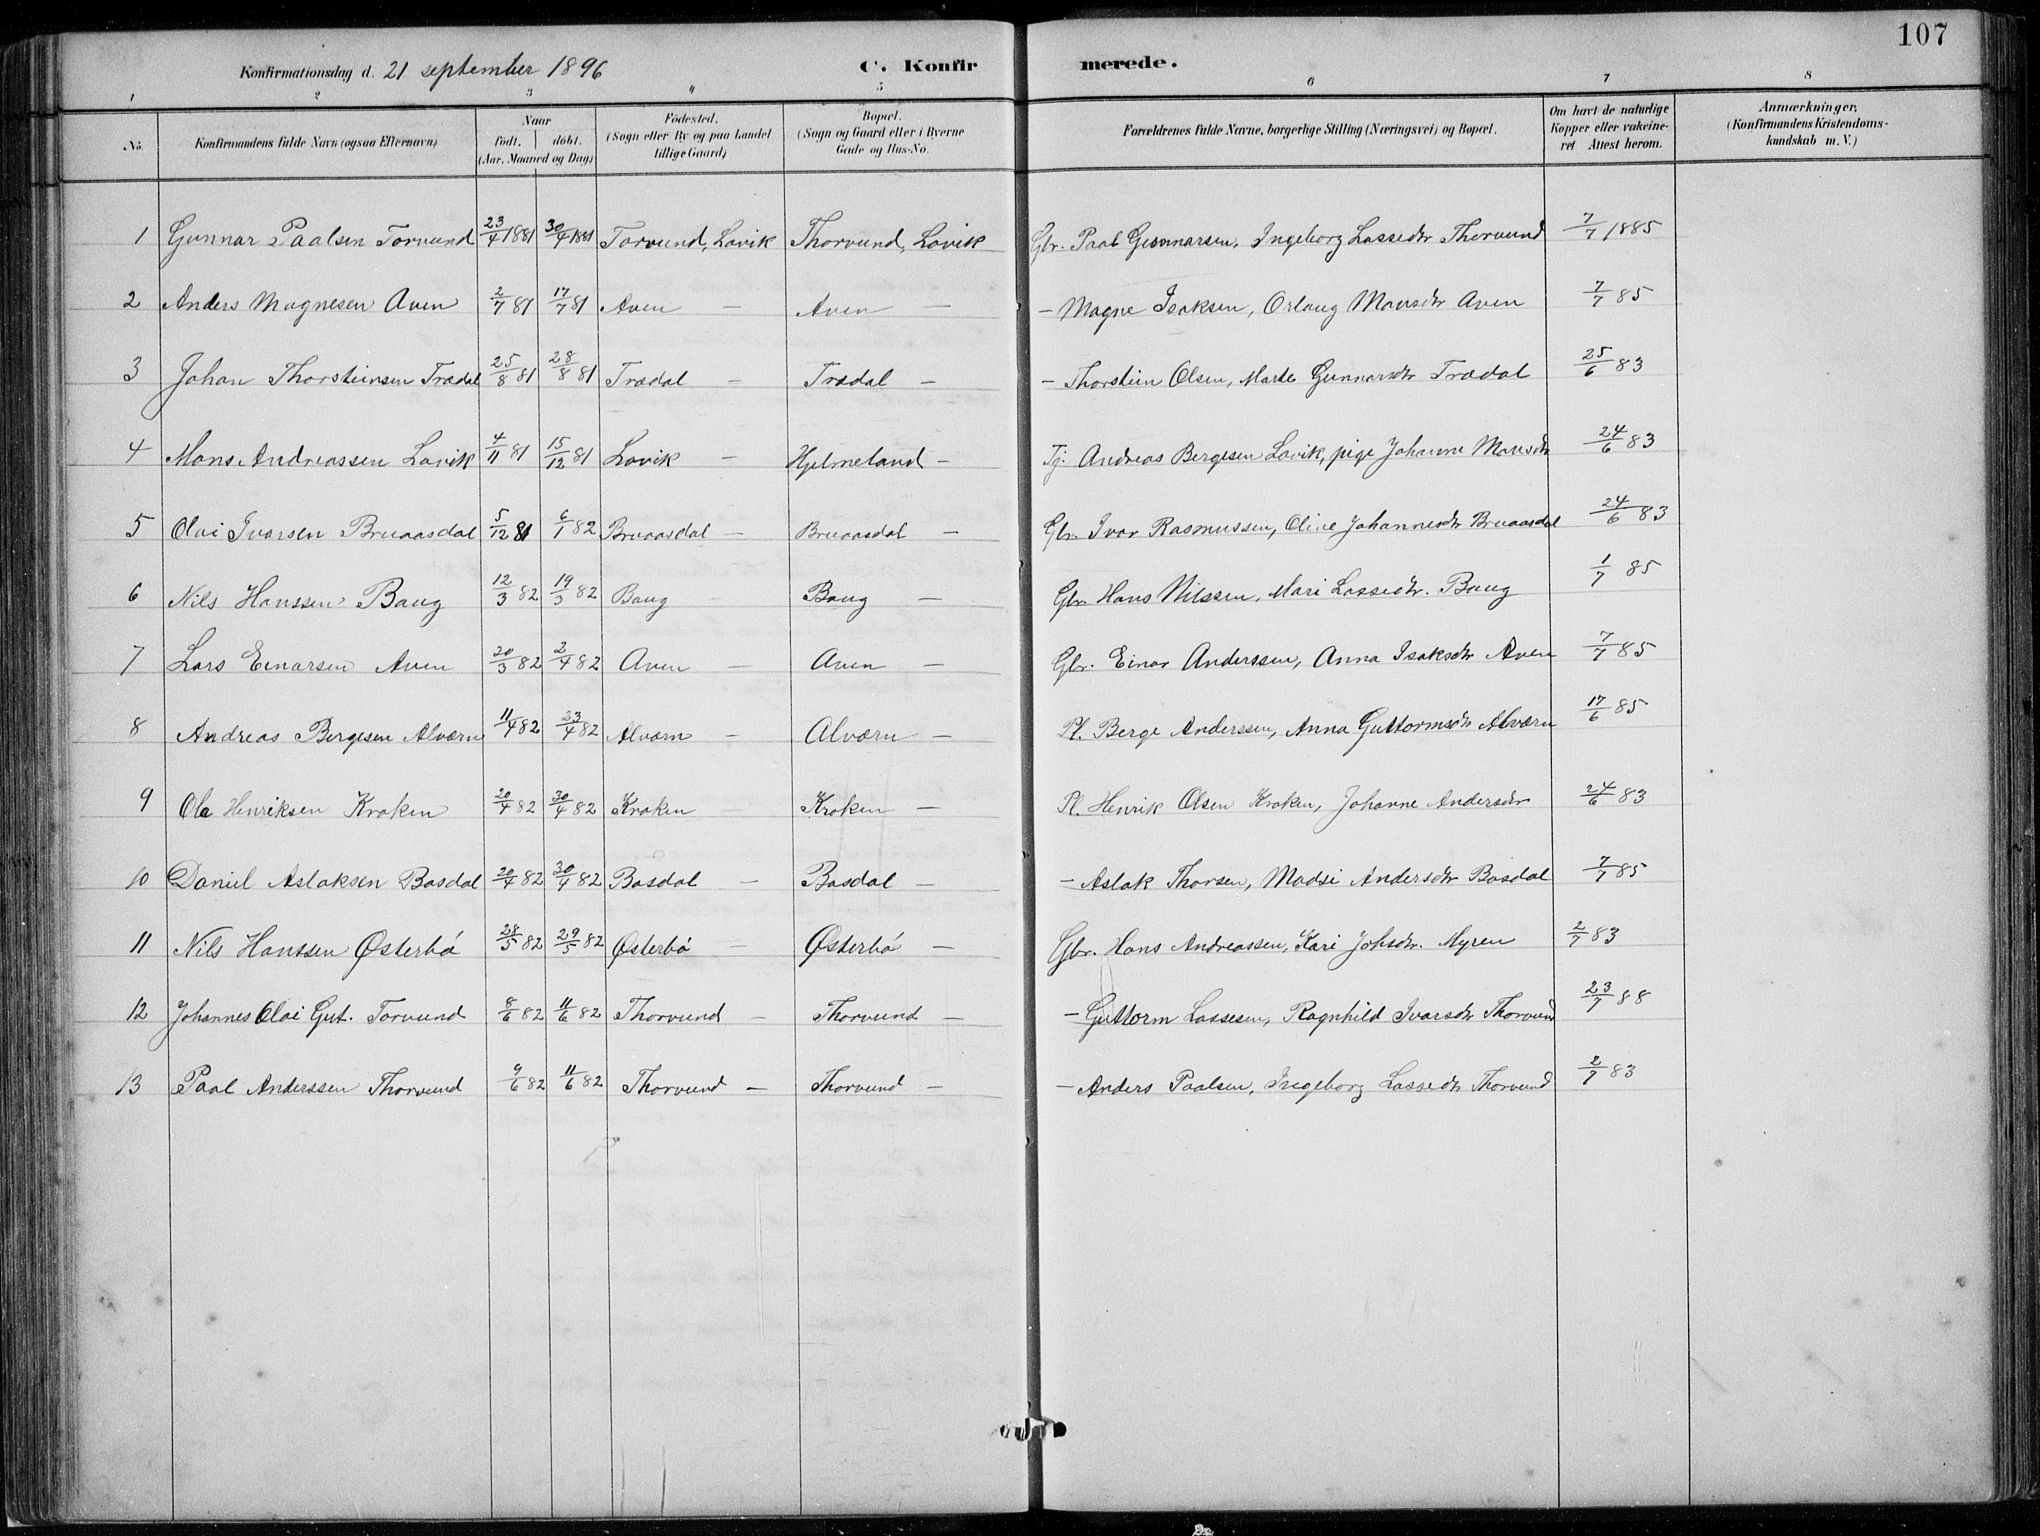 107
Konfirmationsdag d. 21 september 1896 C. Konfirmerede.
1 2 3 4 5 6 7 8
No. Konfirmandens fulde Navn (ogsaa Efternavn) Naar født, døbt. (Aar, Maaned og Dag) Fødested. (Sogn eller By og paa Landet tillige Gaard) Bopæl. (Sogn og Gaard eller i Byerne Gade og Hus-No. Forældrenes fulde Navne, borgerlige Stilling (Næringsvei) og Bopæl. Om havt de naturlige Kopper eller vakcineret Attest herom. Anmærkninger. (Konfirmandens Kristendomskundskab m. V.)
1 Gunnar Paalsen Torvund 23/4 1881 30/4 1881 Torvund, Lavik Thorvund, Lavik Gbr. Paal Gunnarsen, Ingeborg Lassedtr Thorvund 7/7 1885
2 Anders Magnesen Aven 2/7 81 17/7 81 Aven — Aven — - Magne Isaksen, Orlaug Monsdtr Aven 7/7 85
3 Johan Thorsteinsen Trædal 25/8 81 28/8 81 Trædal — Trædal — - Thorstein Olsen, Marte Gunnarsdtr Trædal 25/6 83
4 Mons Andreassen Lavik 4/11 81 15/12 81 Lavik — Hjelmeland — Tj. Andreas Bergesen Lavik, pige Johanne Monsdtr 24/6 83
5 Olai Ivarsen Bruaasdal 5/12 81 6/1 82 Bruaasdal — Bruaasdal — Gbr. Ivar Rasmussen, Oline Johannesdtr Bruaasdal 24/6 83
6 Nils Hanssen Baug 12/3 82 19/3 82 Baug — Baug — Gbr. Hans Nilssen, Mari Lassedtr. Baug 1/7 85
7 Lars Einarsen Aven 20/3 82 2/4 82 Aven — Aven — Gbr. Einar Anderssen, Anna Isaksdtr Aven 7/7 85
8 Andreas Bergesen Alværn 11/4 82 23/4 82 Alværn — Alværn — Pl. Berge Anderssen, Anna Guttormsdtr Alværn 17/6 85
9 Ole Henriksen Kroken 20/4 82 30/4 82 Kroken — Kroken — Pl. Henrik Olsen Kroken, Johanne Andersdtr 24/6 83
10 Daniel Aslaksen Basdal 20/4 82 30/4 82 Basdal — Basdal — - Aslak Thorsen, Madsi Andersdtr Basdal 7/7 85
11 Nils Hanssen Østerbø 28/5 82 29/5 82 Østerbø — Østerbø — Gbr. Hans Andreassen, Kari Johsdtr. Myren 2/7 83
12 Johannes Olai Gut. Torvund 8/6 82 11/6 82 Thorvund — Thorvund — - Guttorm Lassesen, Ragnhild Ivarsdtr Thorvund 23/7 88
13 Paal Anderssen Thorvund 9/6 82 11/6 82 Thorvund — Thorvund — - Anders Paalsen, Ingeborg Lassedtr Thorvund 2/7 83